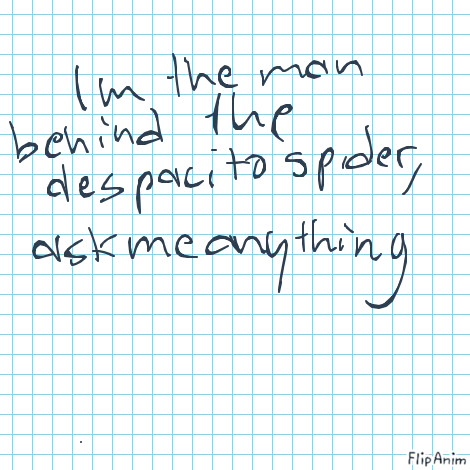 I'm the man
behind the
despacito spider,
ask me anything
FlipAnim